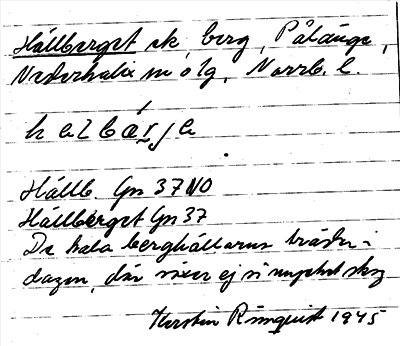 Hällberget sk, berg, Pålänge,
Nederkalix sn o lg, Norrb. l.
Hällb Gn 37 NO
Hällberget Gn 37
De hala berghällarna
dagen, där växer ej så mycket skog
Kerstin Rönnquist 1945